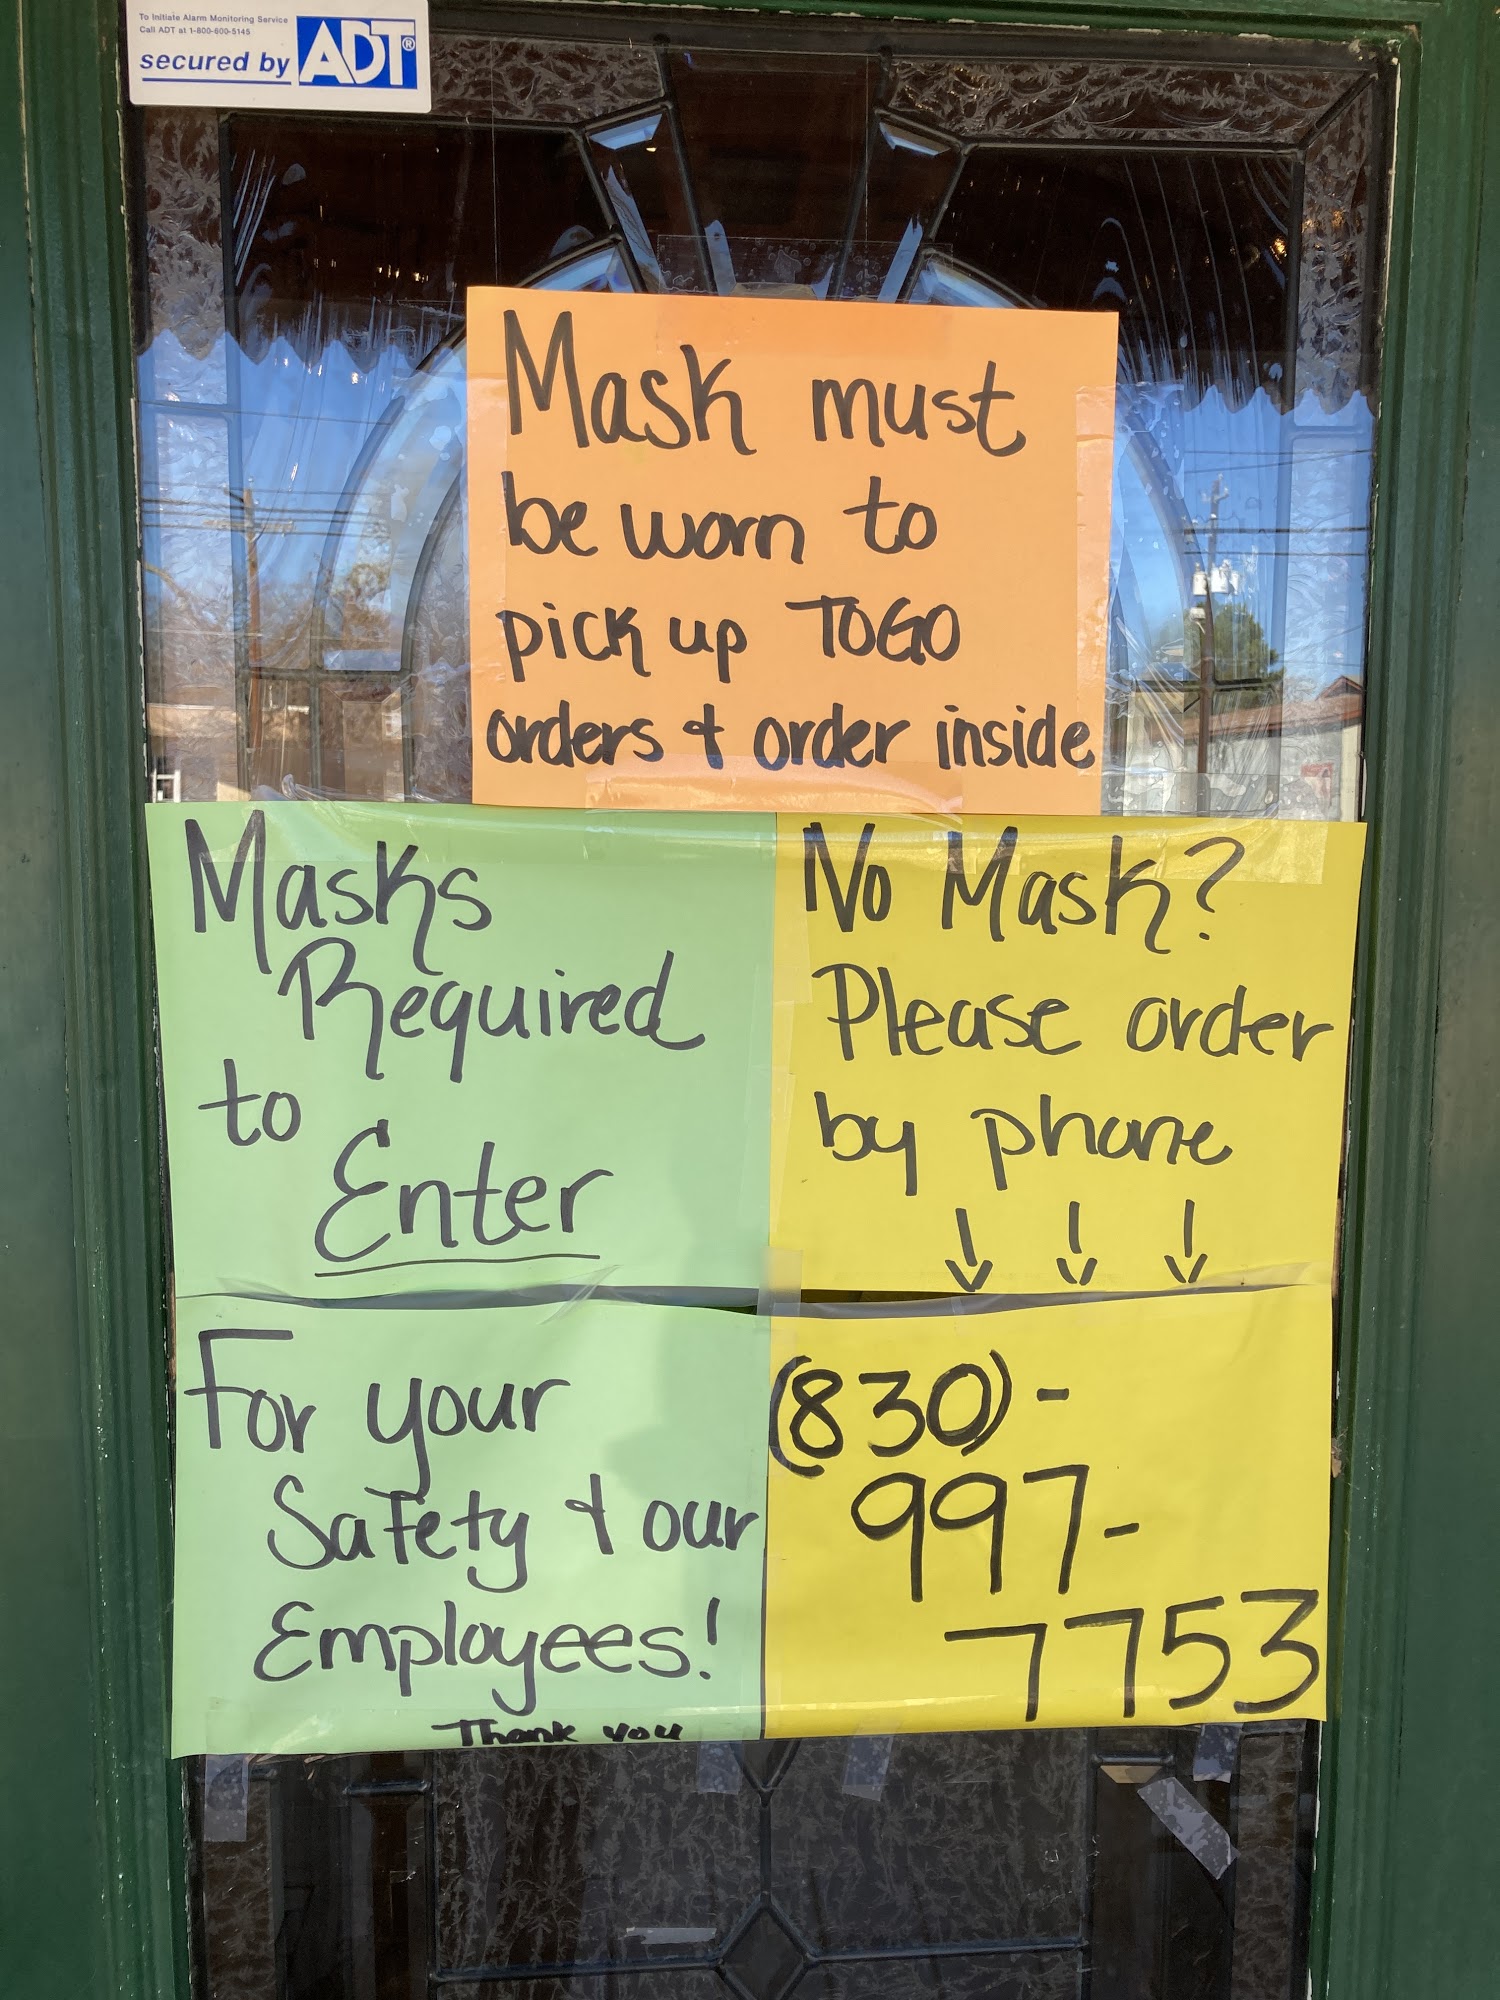 To Initiate Alarm Monitoring Service
Call ADT at 1-800-600-5145
secured by ADT®
Mask must
be worn to
pick up TOGO
orders & order inside
Masks
Required
to
Enter
No Mask?
Please order
by phone
↓ ↓ ↓
For your
Safety & our
Employees!
Thank you
(830)-
997-
7753